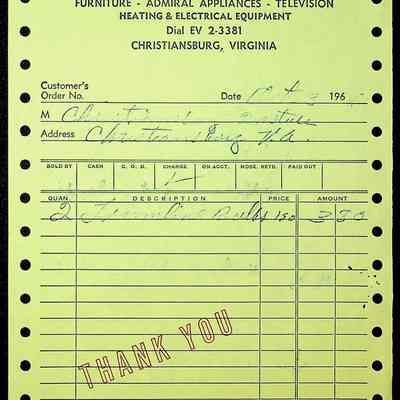 FURNITURE - ADMIRAL APPLIANCES - TELEVISION
HEATING & ELECTRICAL EQUIPMENT
Dial EV 2-3381
CHRISTIANSBURG, VIRGINIA
Customer's
Order No. Date 196
M
Address Christiansburg Va
SOLD BY CASH C. O. D. CHARGE ON ACCT. MDSE. RETD. PAID OUT
QUAN. DESCRIPTION PRICE AMOUNT
2 Bulbs 150 3 00
THANK YOU